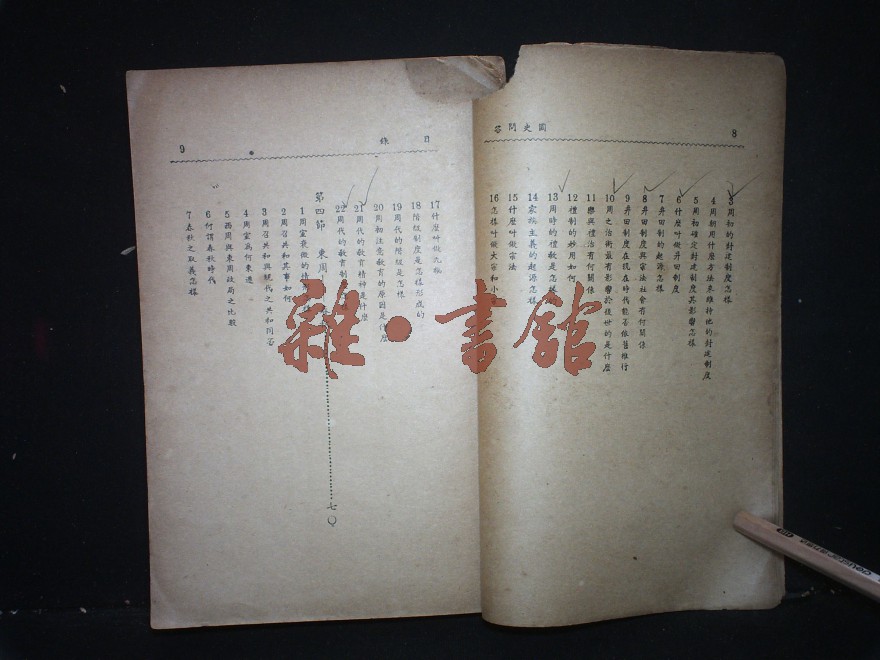 8
國史問答
3 周初的封建制度怎樣
4 周朝用什麼方法來維持他的封建制度
5 周初確定封建制度其影響怎樣
6 什麼叫做井田制度
7 井田制的起源怎樣
8 井田制度與宗法社會有何關係
9 井田制度在現時代能否依舊推行
10 周之治術最有影響於後世的是什麼
11 樂與禮治有何關係
12 禮制的妙用如何
13 周時的禮教是怎樣
14 家族主義的起源怎樣
15 什麼叫做宗法
16 怎樣叫做大宗和小
目錄
9
17 什麼叫做九族
18 階級制度是怎樣形成的
19 周代的階級是怎樣
20 周初注意教育的原因是什麼
21 周代的教育精神是什麼
22 周代的教育制
第四節 東周 七〇
1 周室衰微的情
2 周召共和其事如何
3 周召共和與現代之共和同否
4 周室為何東遷
5 西周與東周政局之比較
6 何謂春秋時代
7 春秋之取義怎樣
雜·書館